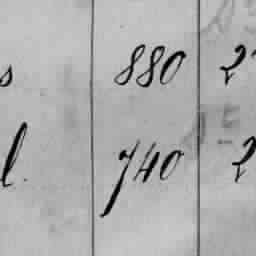 s 880 2
l. 740 2